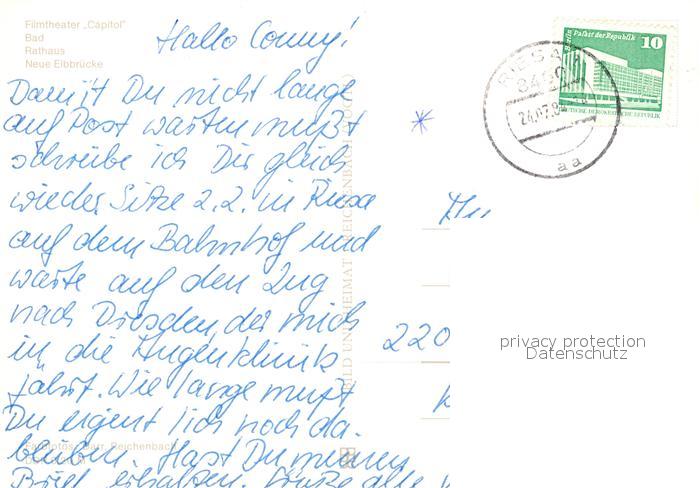 Filmtheater „Capitol"
Bad
Rathaus
Neue Elbbrücke
Hallo Conny!
Damit Du nicht lange
auf Post warten mußt
schreibe ich Dir gleich
wieder. Sitze z.Z. in Riesa
auf dem Bahnhof und
warte auf den Zug
nach Dresden, der mich
in die Augenklinik
fährt. Wie lange mußt
Du eigentlich noch da-
bleiben. Hast Du meinen
Brief erhalten. Grüße alle
An
220
Berlin, Palast der Republik
10
DEUTSCHE DEMOKRATISCHE REPUBLIK
RIESA
24.07.8
aa
privacy protection
Datenschutz
BILD UND HEIMAT REICHENBACH
Reichenbach